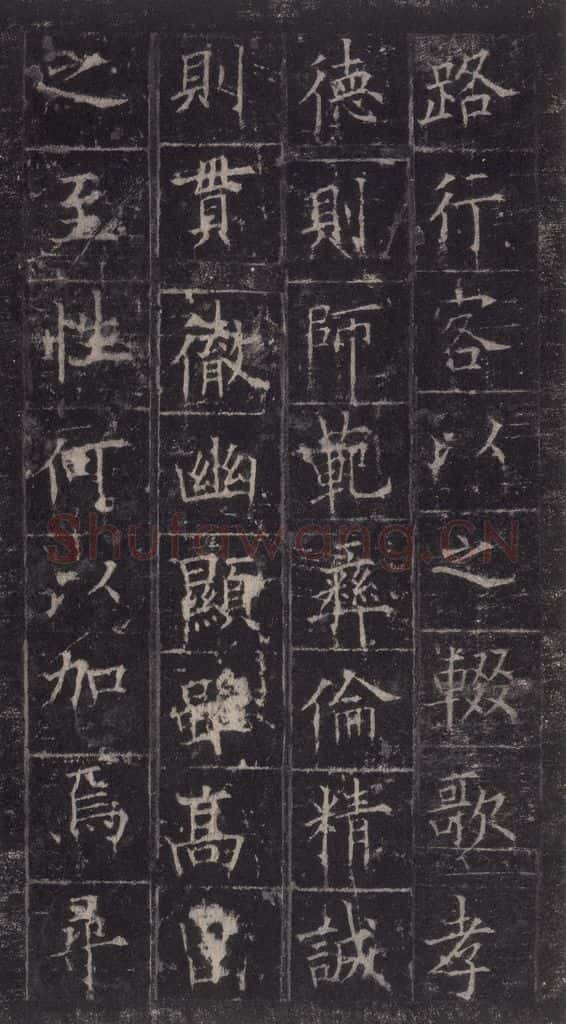 路行客以之輟歌孝
德則師範彝倫精誠
則貫徹幽顯雖高
之至性何以加焉尋
Shufawang.CN